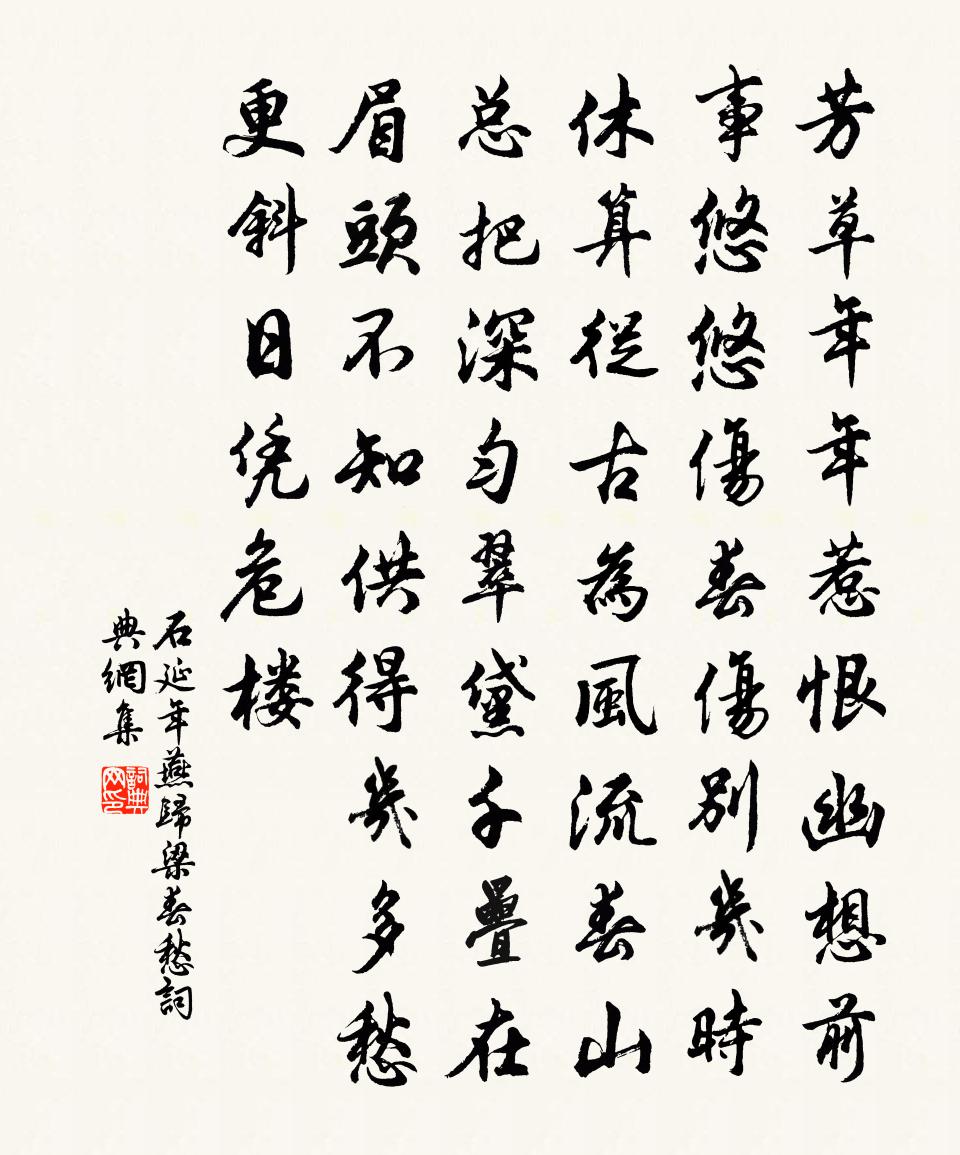 芳草年年惹恨幽想前
事悠悠傷春傷別幾時
休算從古為風流春山
总把深勻翠黛千疊在
眉頭不知供得幾多愁
更斜日凭危楼
石延年燕歸梁春愁詞
典網集
詞典
网印